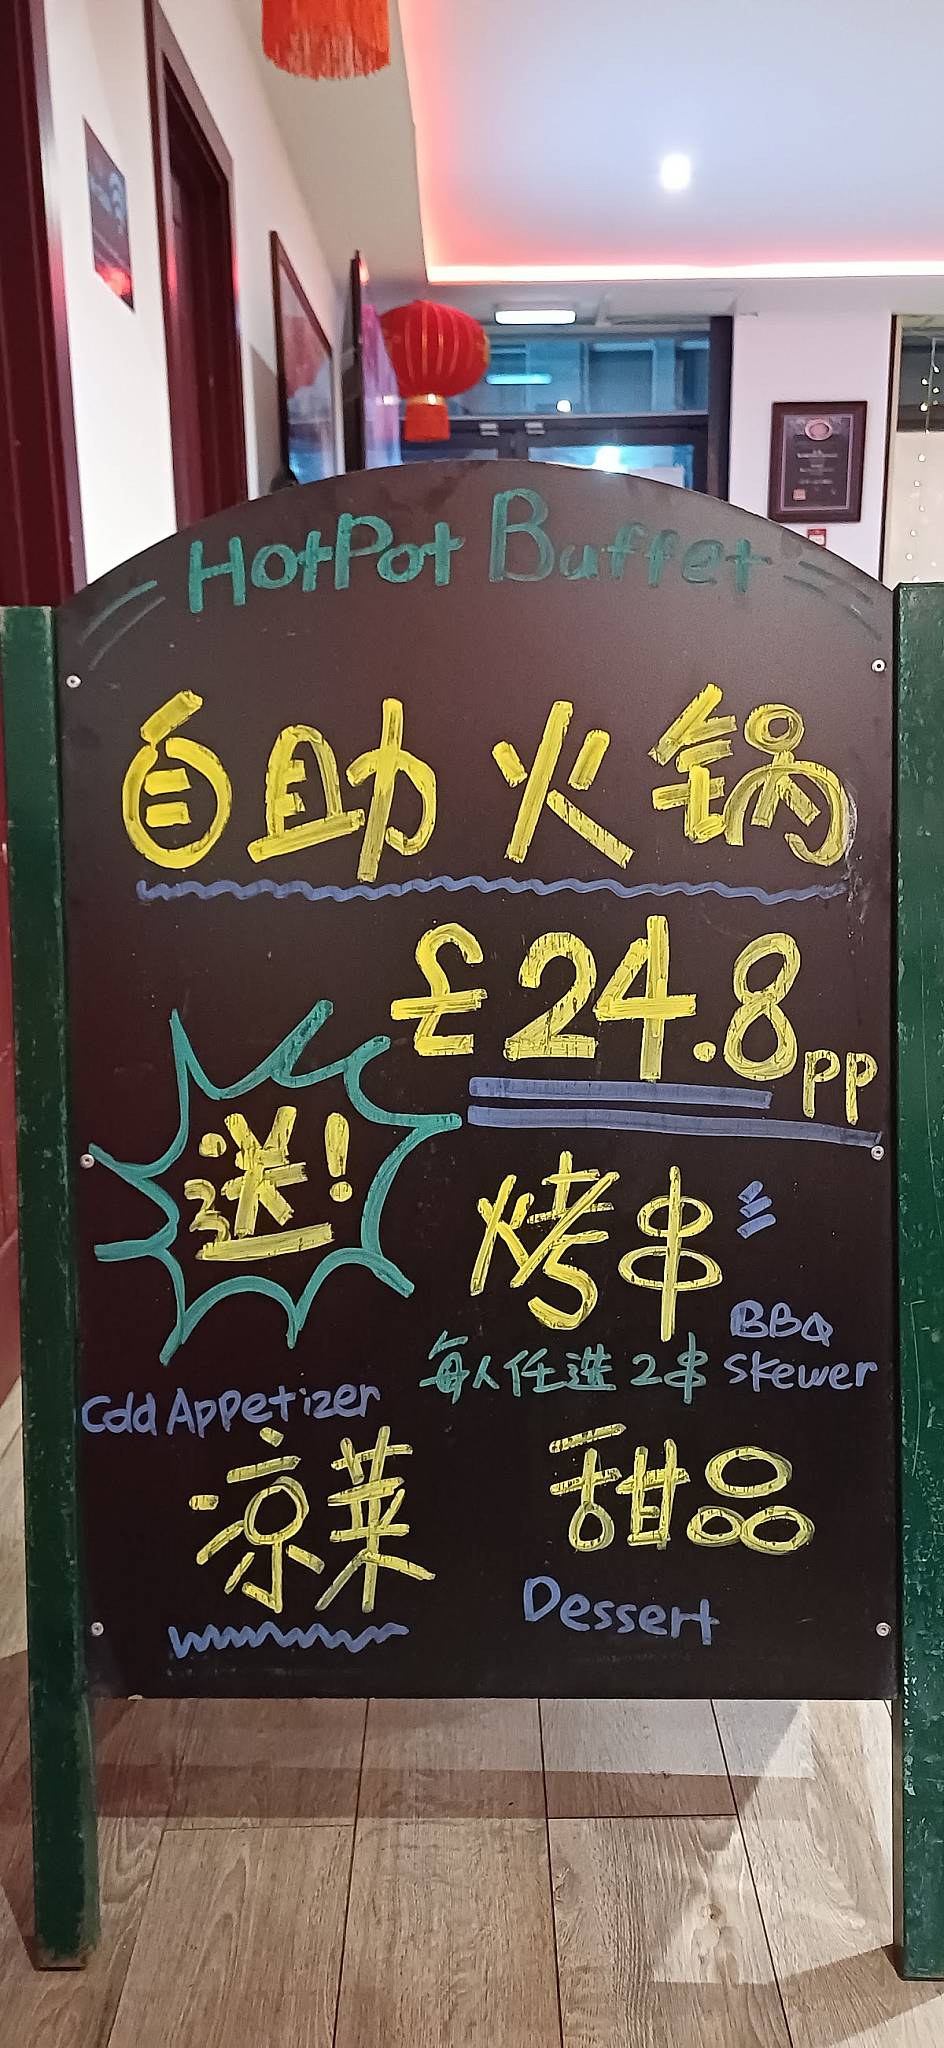 HotPot Buffet
自助火锅
£24.8pp
送!
烤串
BBQ
每人任选2串 Skewer
Cold Appetizer
凉菜
甜品
Dessert